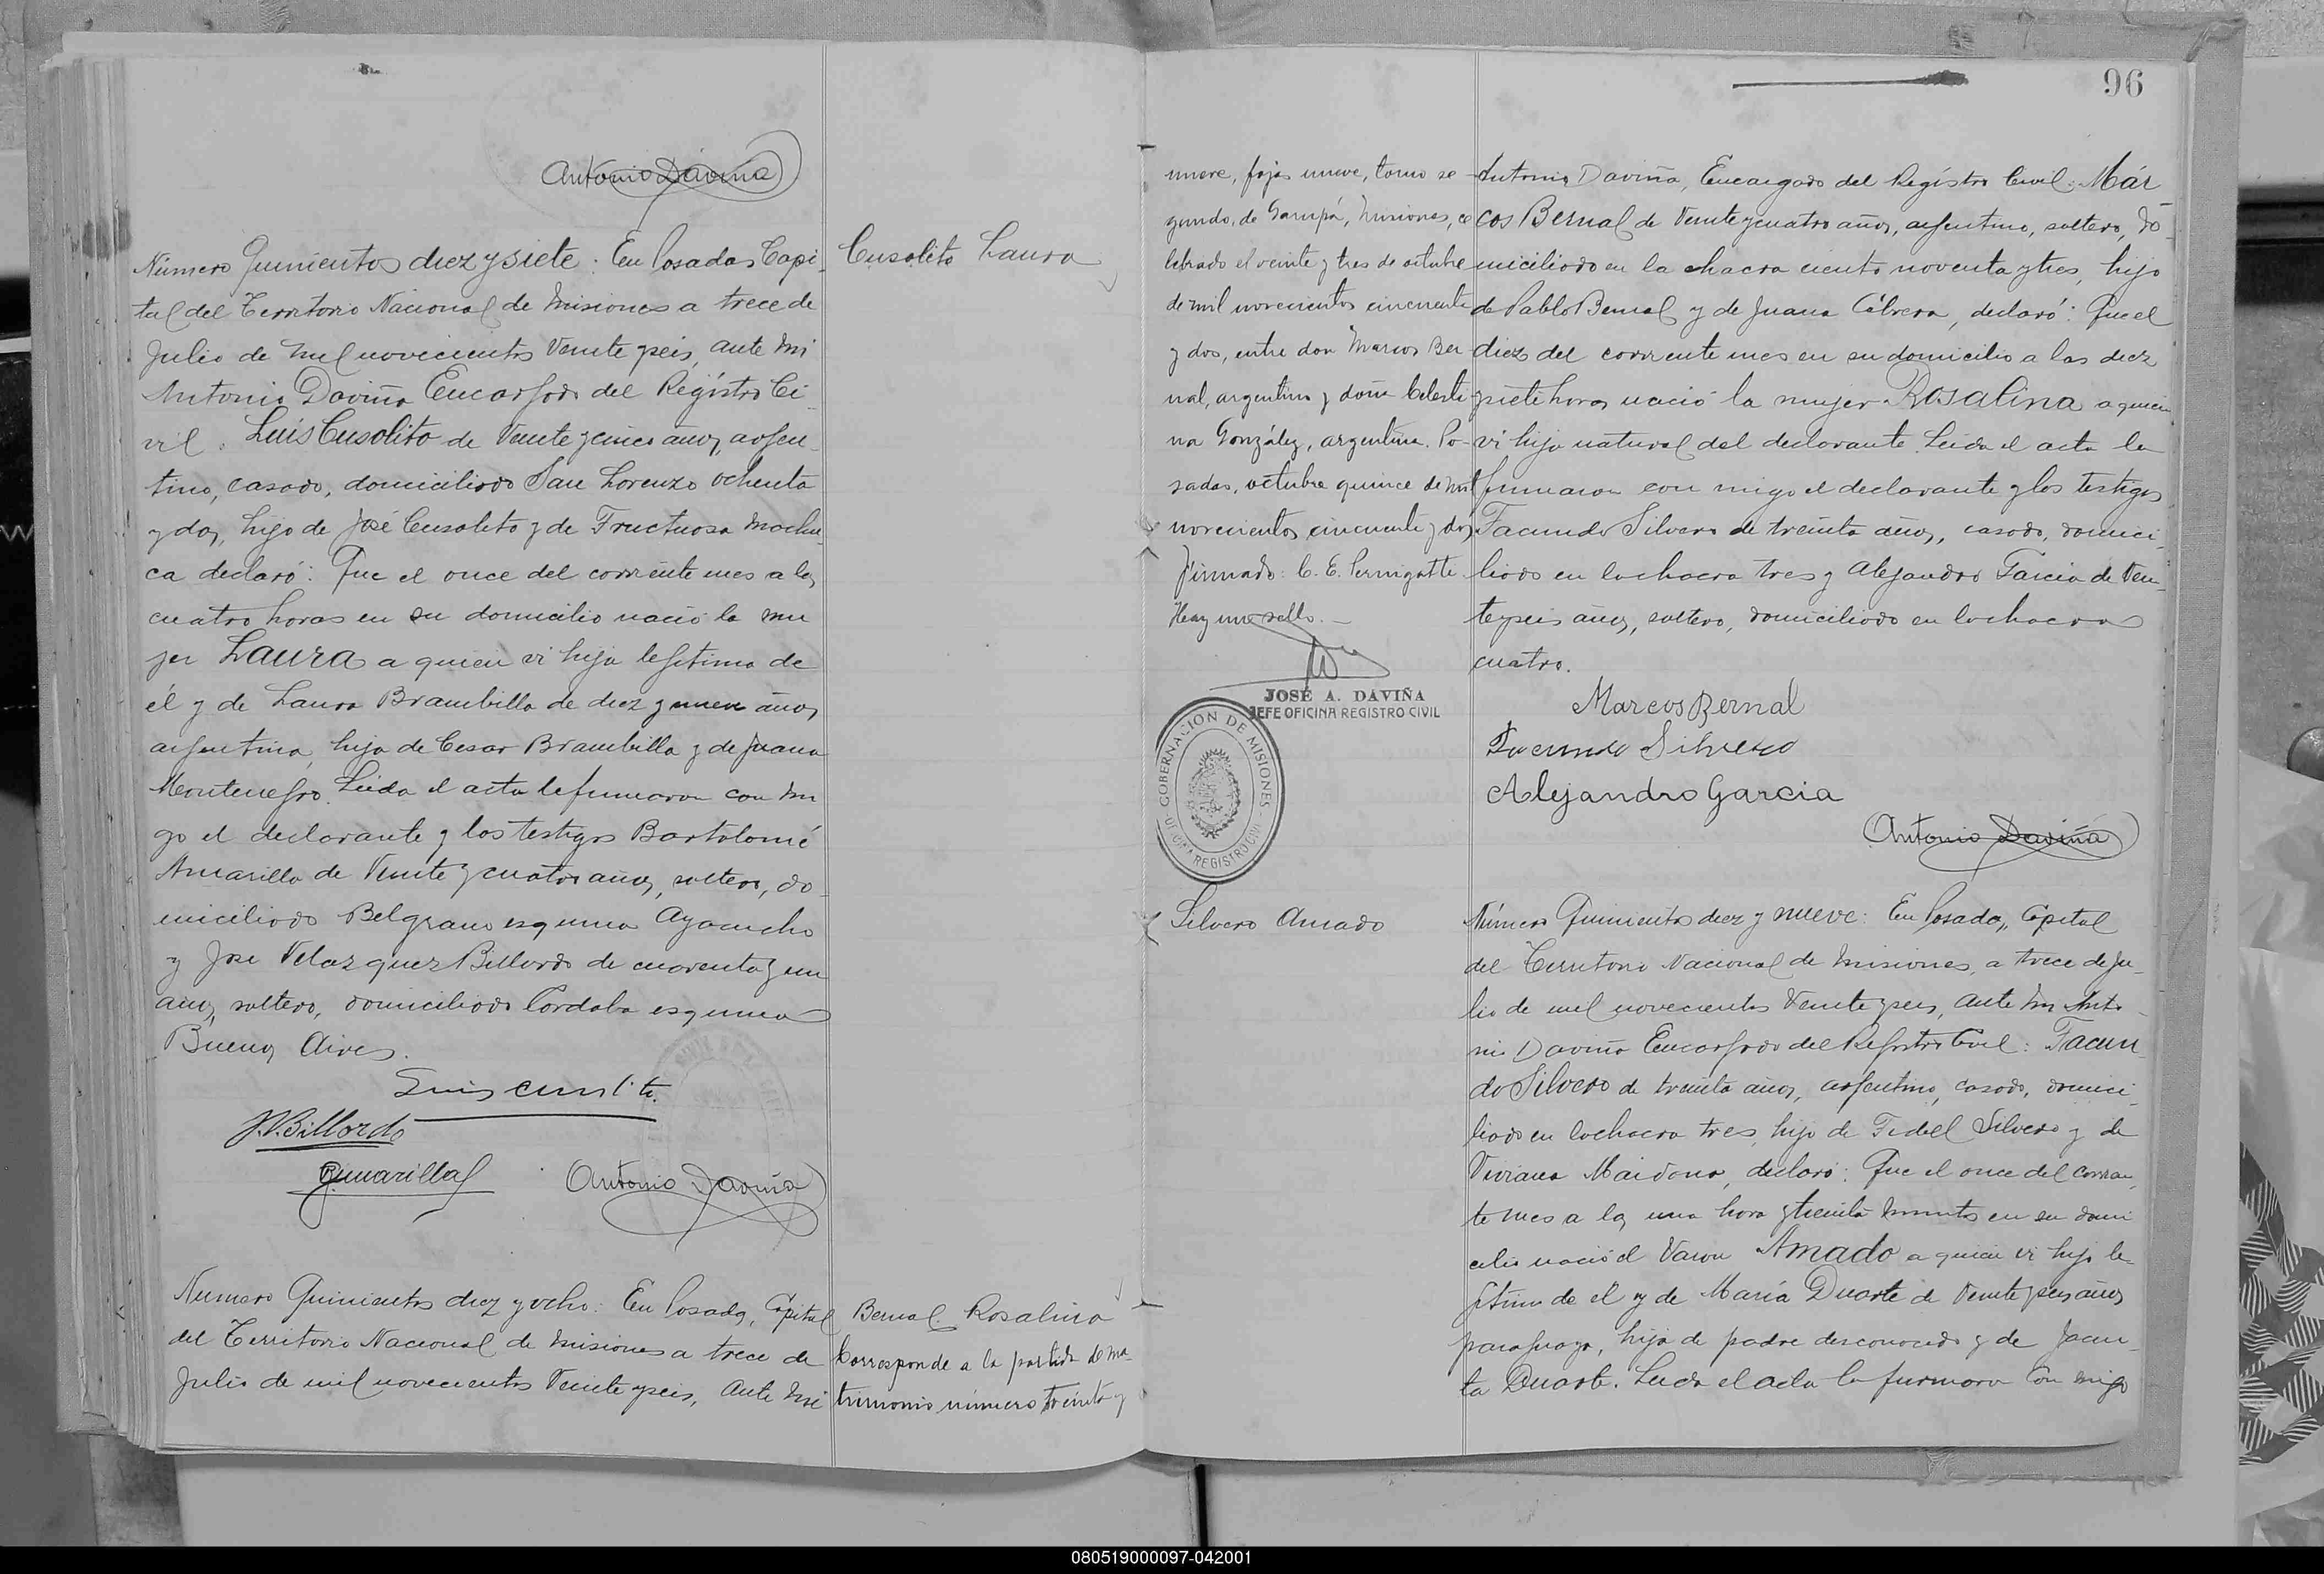 Antonio Daviña
Número Quinientos diez y siete: En Posadas Capi-
tal del Territorio Nacional de Misiones a trece de
Julio de mil novecientos veinte y seis, ante mi
Antonio Daviña Encargado del Registro Ci-
vil: Luis Cusolito de veinte y cinco años, argen-
tino, casado, domiciliado San Lorenzo ochenta
y dos, hijo de José Cusolito y de Fructuosa Machu-
ca declaró: Que el once del corriente mes a las
cuatro horas en su domicilio nació la mu
jer Laura a quien vi hija legítima de
él y de Laura Brambilla de diez y nueve años
argentina, hija de Cesar Brambilla y de Juana
Montenegro. Leida el acta la firmaron con mi
go el declarante y los testigos Bartolomé
Amarilla de veinte y cuatro años, soltero, do-
miciliado Belgrano esquina Ayacucho
y José Velazquez Billordo de cuarenta y un
años, soltero, domiciliado Córdoba esquina
Buenos Aires.
J.V.Billordo
Antonio Daviña
Cusolito Laura
Numero Quinientos diez y ocho: En Posadas, Capital
del Territorio Nacional de Misiones a trece de
Julio de mil novecientos veinte y seis, ante mi
Bernal Rosalina
Corresponde a la partida de ma-
trimonio número treinta y
96
nueve, fojas nueve, tomo se-
gundo, de Garupá, Misiones, ce
lebrado el veinte y tres de octubre
de mil novecientos cincuenta
y dos, entre don Marcos Ber
nal, argentino y doña Celesti
na González, argentina. Po-
sadas, octubre quince de mil
novecientos cincuenta y dos
Firmado: C. E. Pernigotte
Hay un sello.-
JOSÉ A. DAVIÑA
JEFE OFICINA REGISTRO CIVIL
GOBERNACION DE MISIONES
OFICINA REGISTRO CIVIL
Antonio Daviña, Encargado del Registro Civil: Már
cos Bernal de veinte y cuatro años, argentino, soltero, do-
miciliado en la chacra ciento noventa y tres, hijo
de Pablo Bernal y de Juana Cabrera, declaró: Que el
diez del corriente mes en su domicilio a las diez
y siete horas nació la mujer Rosalina a quien
vi hija natural del declarante. Leida el acta la
firmaron con migo el declarante y los testigos
Facundo Silvero de treinta años, casado, domici-
liado en la chacra tres y Alejandro Garcia de vein-
te y seis años, soltero, domiciliado en la chacra
cuatro.
Marcos Bernal
Facundo Silvero
Alejandro Garcia
Antonio Daviña
Silvero Amado
Número Quinientos diez y nueve: En Posadas, Capital
del Territorio Nacional de Misiones, a trece de Ju-
lio de mil novecientos veinte y seis, ante mi Anto-
nio Daviña Encargado del Registro Civil: Facun
do Silvero de treinta años, argentino, casado, domici-
liado en la chacra tres, hijo de Fidel Silvero y de
Viviana Maidana, declaró: Que el once del corrien
te mes a la una hora y treinta minutos en su domi
cilio nació el varon Amado a quien vi hijo le-
gítimo de el y de María Duarte de veinte y seis años
paraguaya, hija de padre desconocido y de Jacin-
ta Duarte. Leida el acta la firmaron con migo
080519000097-042001